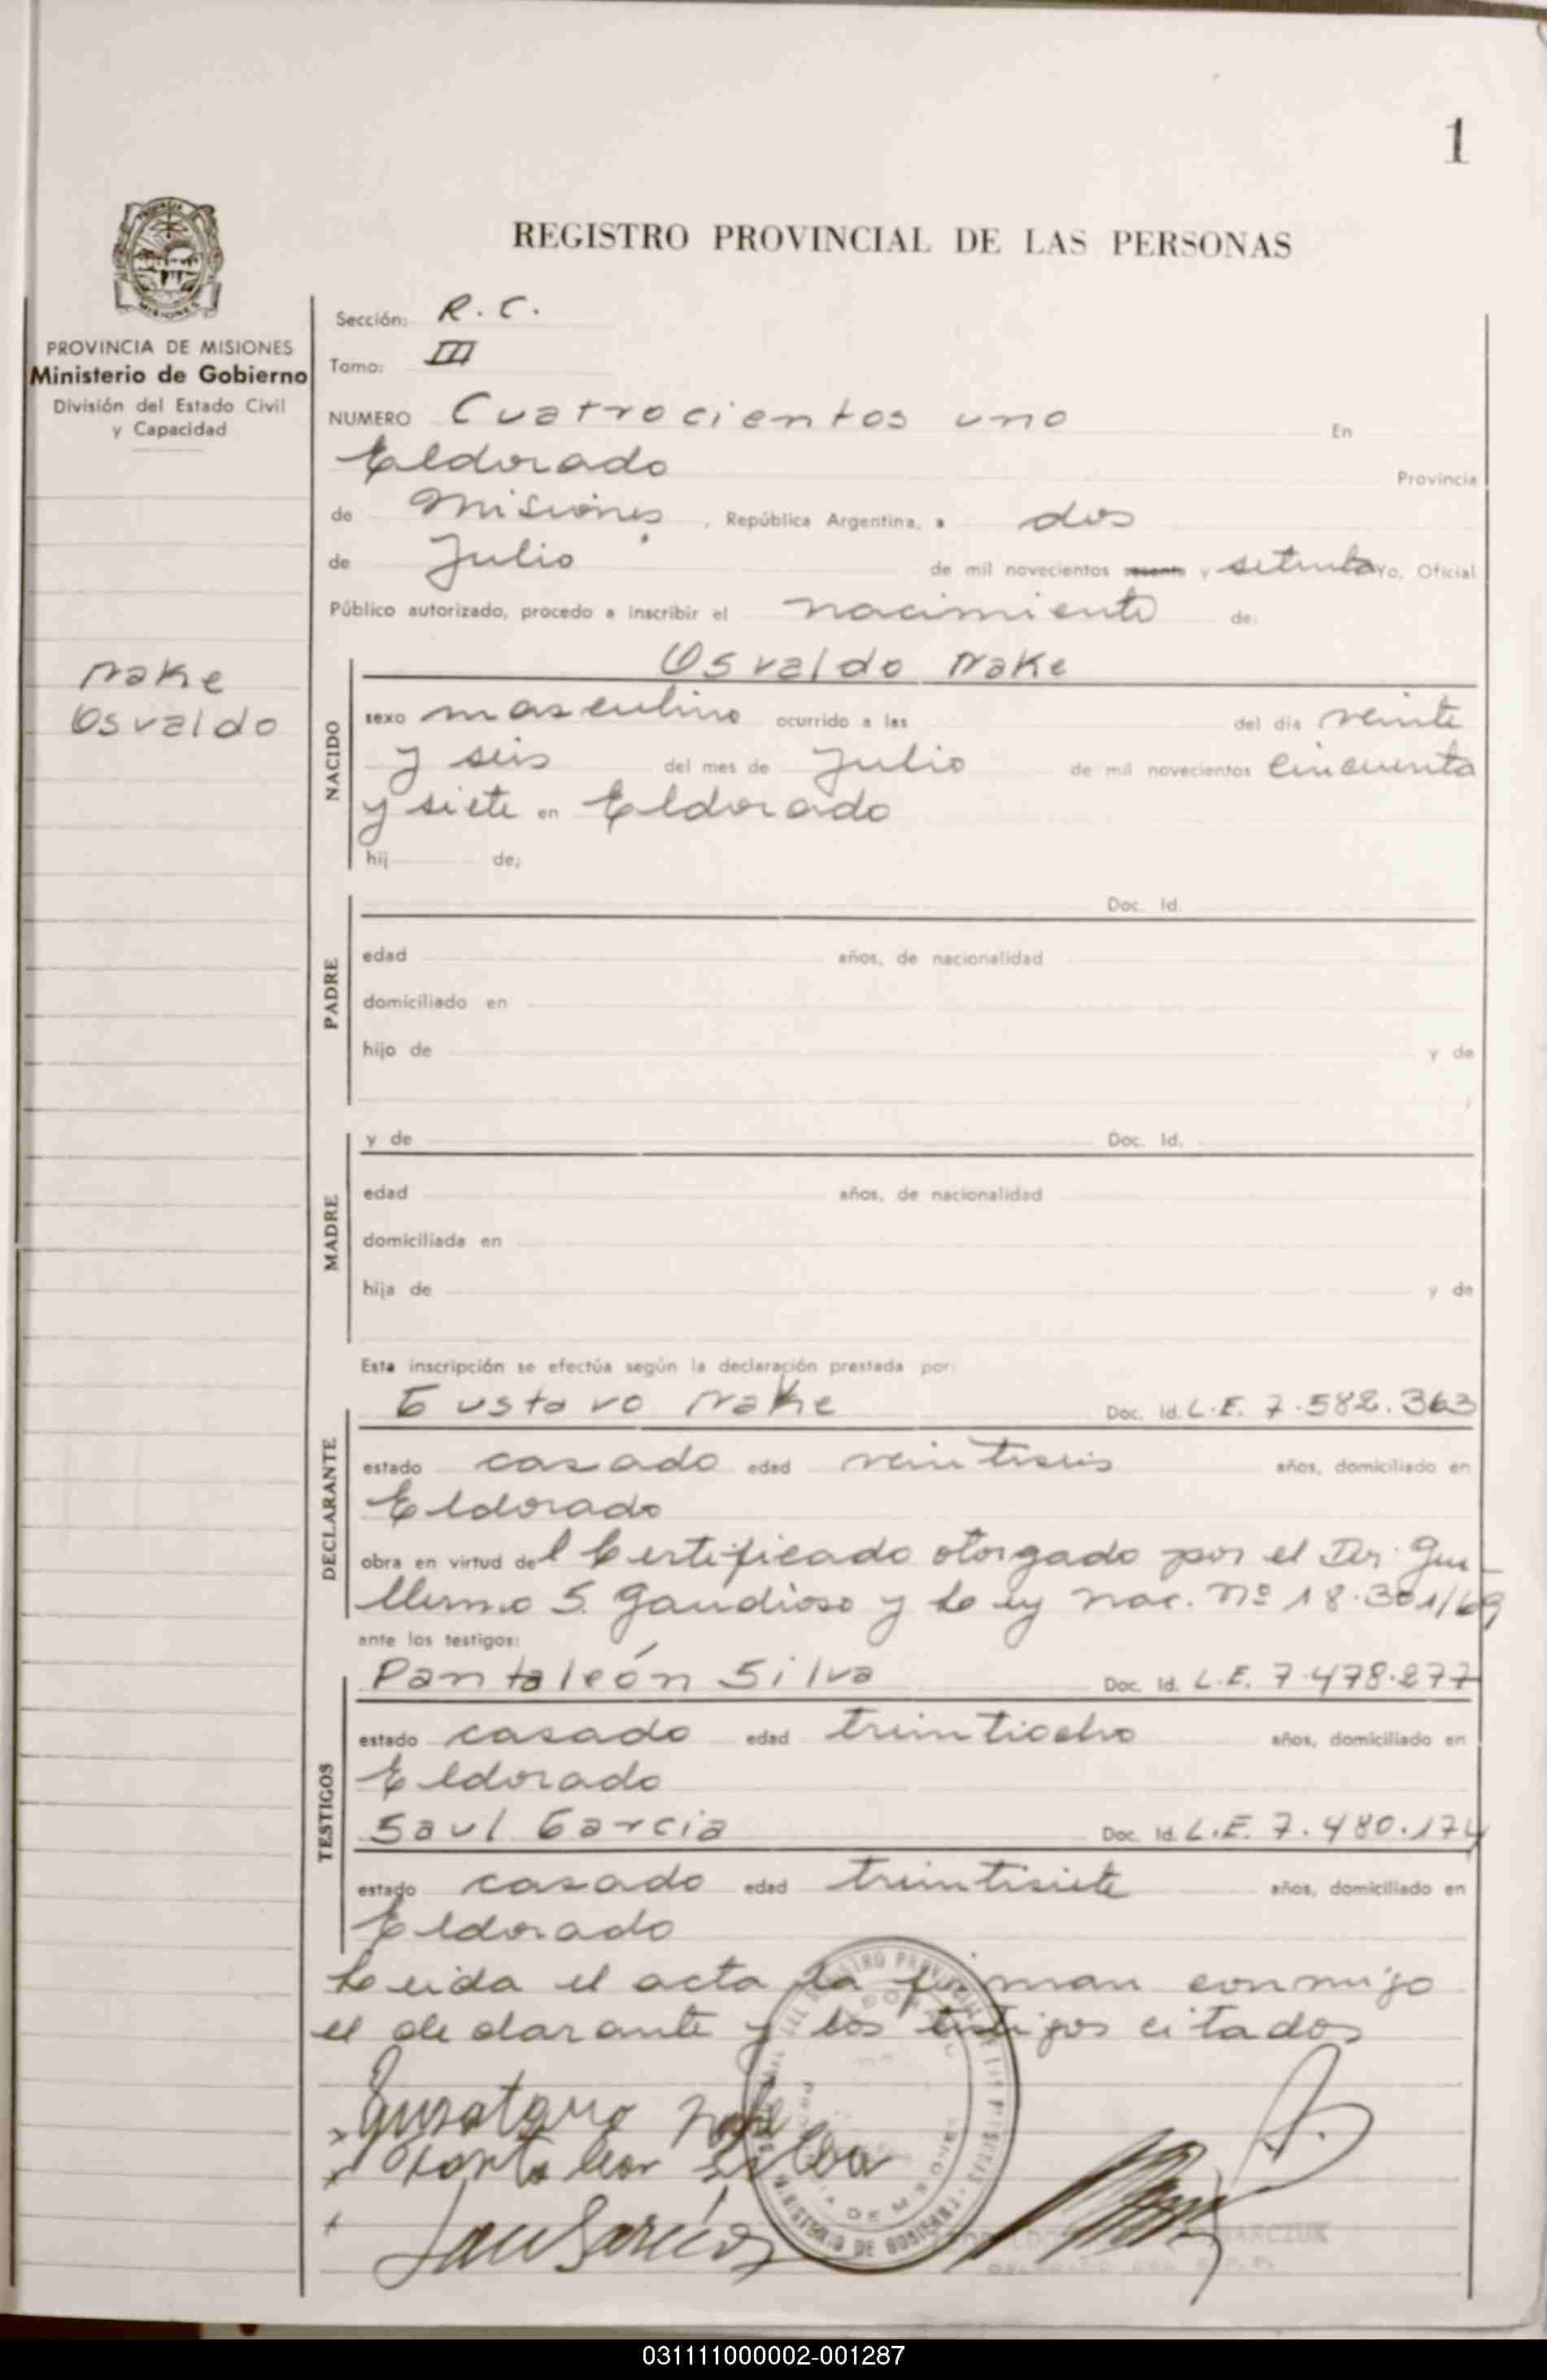 1
REGISTRO PROVINCIAL DE LAS PERSONAS
MISIONES
PROVINCIA DE MISIONES
Ministerio de Gobierno
División del Estado Civil
y Capacidad
Sección: R. C.
Tomo: III
NUMERO Cuatrocientos uno En
Eldorado Provincia
de Misiones, República Argentina, a dos
de Julio de mil novecientos sesenta y setenta Yo, Oficial
Público autorizado, procedo a inscribir el nacimiento de:
Nake
Osvaldo
NACIDO
Osvaldo Nake
sexo masculino ocurrido a las del día veinte
y seis del mes de Julio de mil novecientos cincuenta
y siete en Eldorado
hij de;
PADRE
Doc. Id.
edad años, de nacionalidad
domiciliado en
hijo de y de
MADRE
y de Doc. Id.
edad años, de nacionalidad
domiciliada en
hija de y de
Esta inscripción se efectúa según la declaración prestada por:
DECLARANTE
Gustavo Nake Doc. Id. L.E. 7.582.363
estado casado edad veintiseis años, domiciliado en
Eldorado
obra en virtud del Certificado otorgado por el Dr. Gui-
llermo S. Gaudioso y Ley nac. Nº 18.301/69
ante los testigos:
TESTIGOS
Pantaleón Silva Doc. Id. L.E. 7.478.277
estado casado edad treintiocho años, domiciliado en
Eldorado
Saul Garcia Doc. Id. L.E. 7.480.174
estado casado edad treintisiete años, domiciliado en
Eldorado
Leida el acta la firman conmigo
el declarante y los testigos citados
MINISTERIO DE GOBIERNO
031111000002-001287